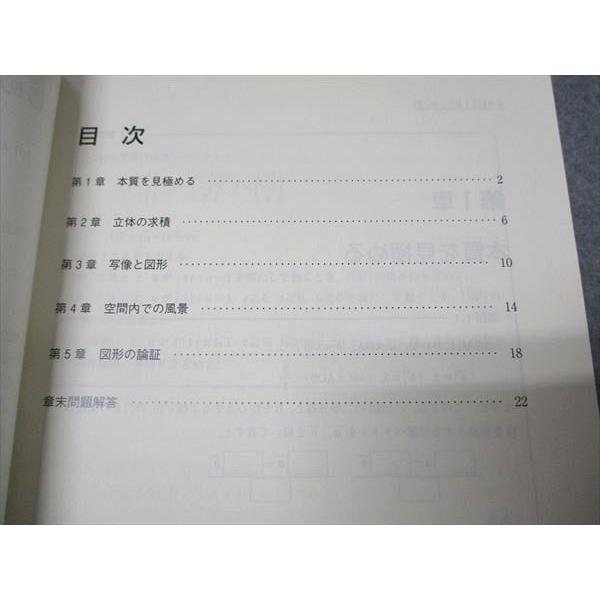 目 次
第1章 本質を見極める ………………………… 2
第2章 立体の求積 ………………………… 6
第3章 写像と図形 ………………………… 10
第4章 空間内での風景 ………………………… 14
第5章 図形の論証 ………………………… 18
章末問題解答 ………………………… 22